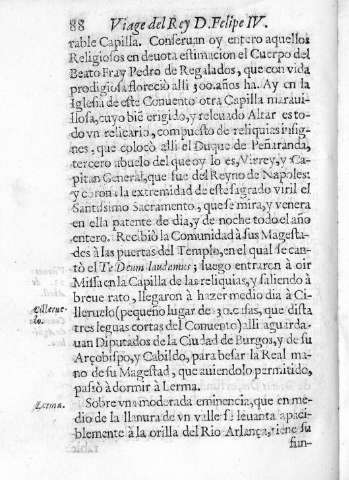 88 Viage del Rey D. Felipe IV.
rable Capilla. Conseruan oy entero aquellos
Religiosos en deuota estimacion el Cuerpo del
Beato Fray Pedro de Regalados, que con vida
prodigiosa floreciò alli 300. años ha. Ay en la
Iglesia de este Conuento otra Capilla maraui-
llosa, cuyo biē erigido, y releuado Altar es to-
do vn relicario, compuesto de reliquias insig-
nes, que colocò alli el Duque de Peñaranda,
tercero abuelo del que oy lo es, Virrey, y Ca-
pitan General, que fue del Reyno de Napoles:
y corona la extremidad de este sagrado viril el
Santissimo Sacramento, que se mira, y venera
en ella patente de dia, y de noche todo el año
entero. Recibiò la Comunidad à sus Magesta-
des à las puertas del Templo, en el qual se can-
tò el Te Deum laudamus; luego entraron à oir
Missa en la Capilla de las reliquias, y saliendo à
breue rato, llegaron à hazer medio dia à Ci-
Cilleruelo.
lleruelo (pequeño lugar de 30. casas, que dista
tres leguas cortas del Conuento) alli aguarda-
uan Diputados de la Ciudad de Burgos, y de su
Arçobispo, y Cabildo, para besar la Real ma-
no de su Magestad, que auiendolo permitido,
passò à dormir à Lerma.
Lerma.
Sobre vna moderada eminencia, que en me-
dio de la llanura de vn valle se leuanta apaci-
blemente à la orilla del Rio Arlança, tiene su
fun-